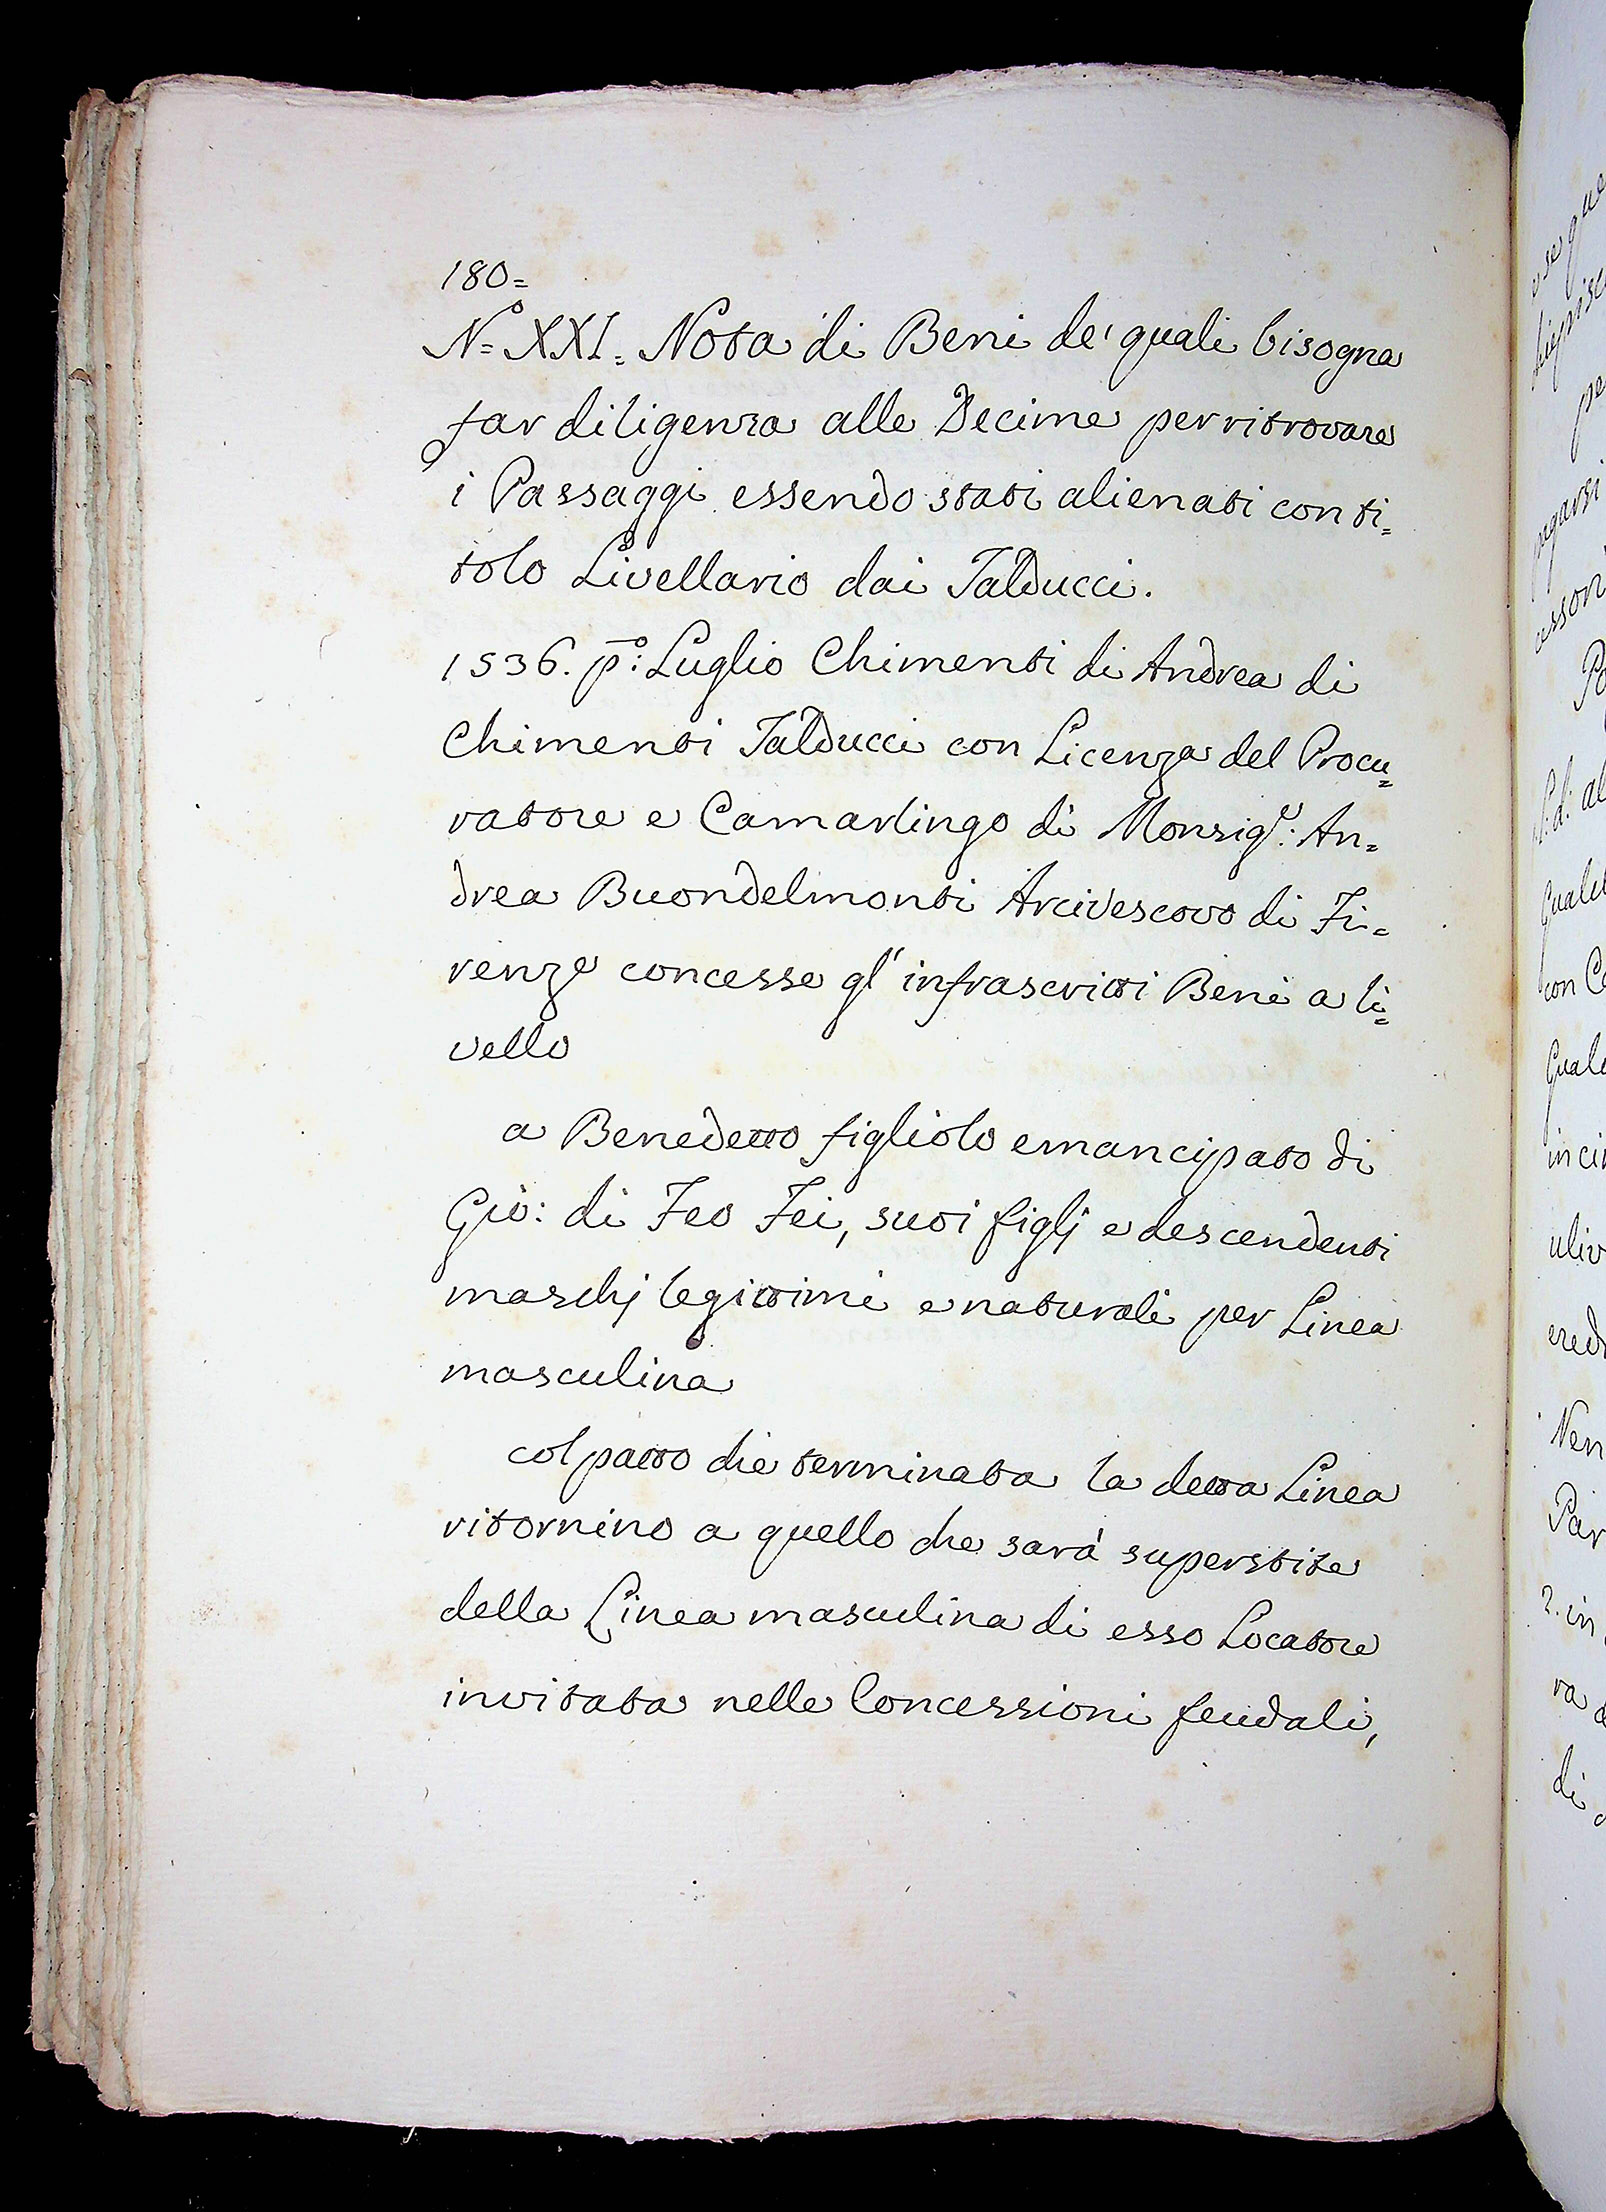 180=
N.º XXI. Nota di Beni de' quali bisogna
far diligenza alle Decime per ritrovare
i Passaggi essendo stati alienati con ti=
tolo Livellario dai Talducci.
1536. p.º: Luglio Chimenti di Andrea di
Chimenti Talducci con Licenza del Procu=
ratore e Camarlingo di Monsig.r: An=
drea Buondelmonti Arcivescovo di Fi=
renze concesse gl' infrascritti Beni a li=
vello
a Benedetto figliolo emancipato di
Gio: di Feo Fei, suoi figlj e descendenti
maschj legittimi e naturali per Linea
masculina
col patto che terminata la detta Linea
ritornino a quello che sarà superstite
della Linea masculina di esso Locatore
invitata nelle Concessioni feudali,